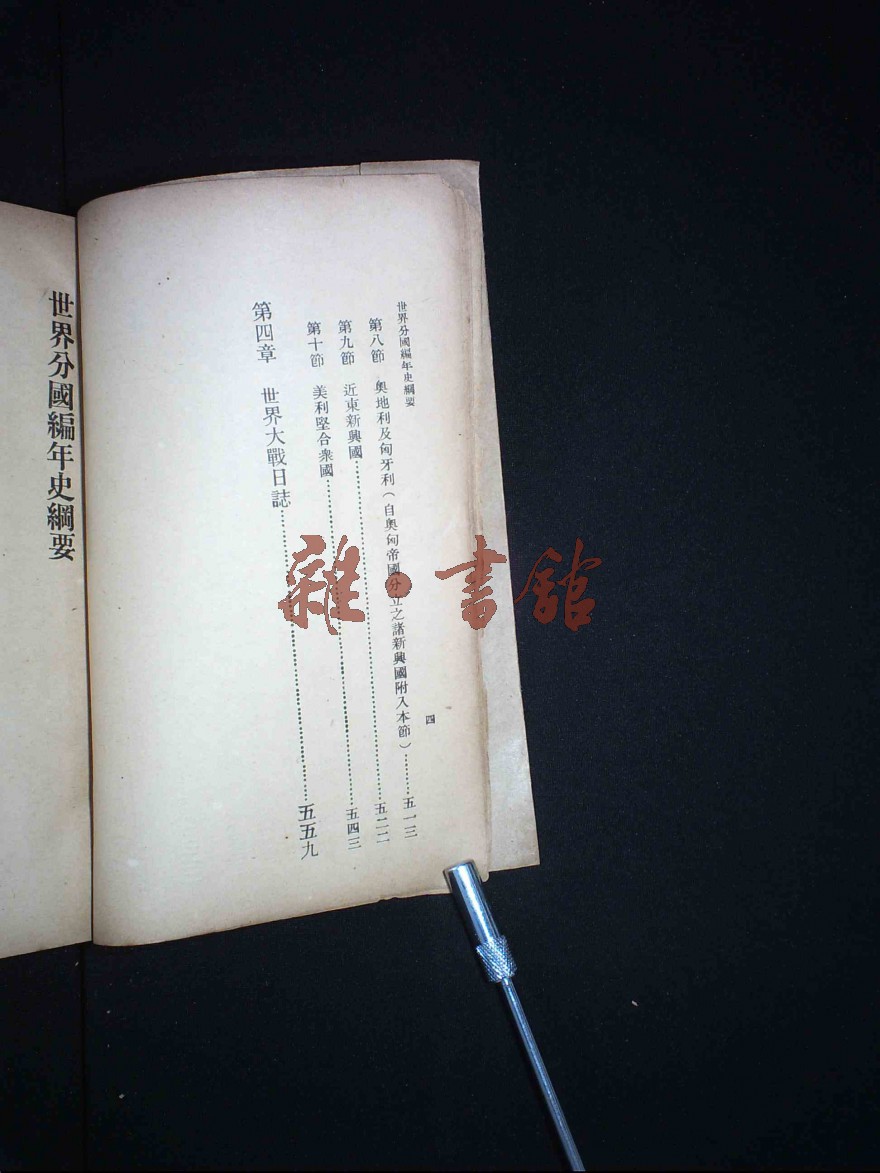 世界分國編年史綱要
四
第八節　奧地利及匈牙利（自奧匈帝國分立之諸新興國附入本節）…………五一三
第九節　近東新興國…………五二二
第十節　美利堅合衆國…………五四三
第四章　世界大戰日誌…………五五九
世界分國編年史綱要
雜·書館